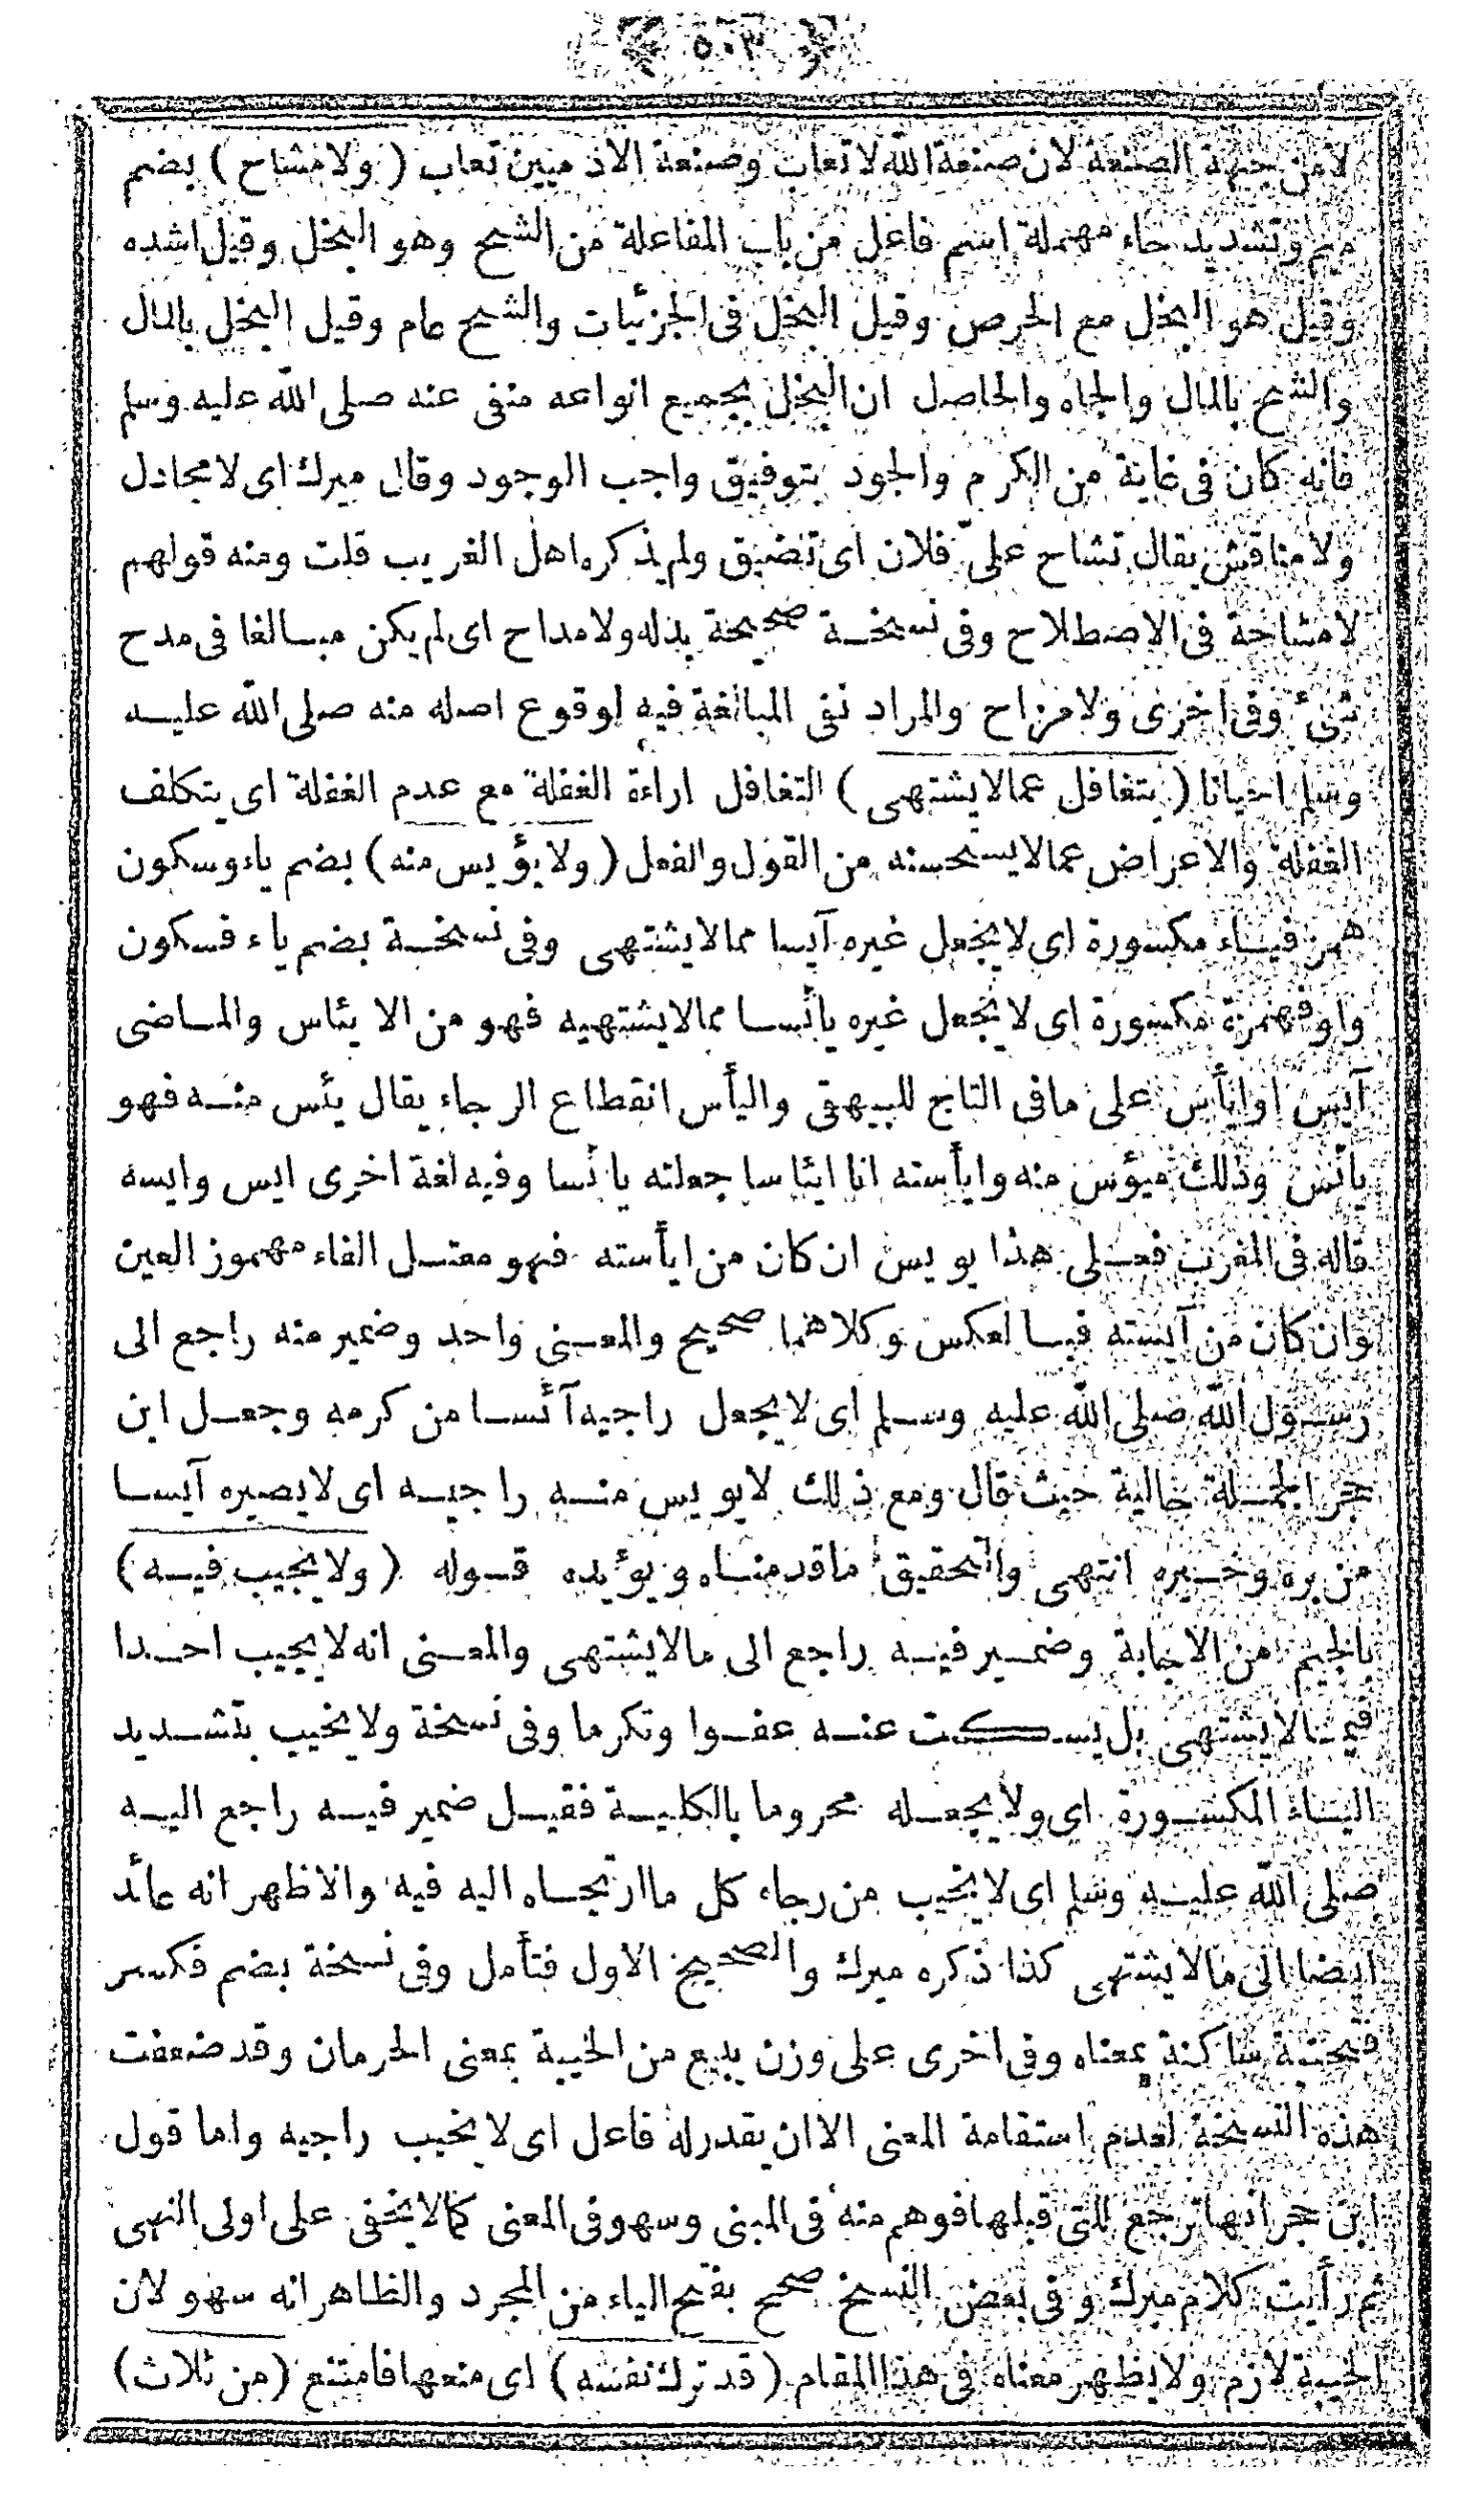 ﴿ ٥٠٣ ﴾
لامن جهة الصنعة لان صنعة الله لا تعاب وصنعة الادميين تعاب ( ولا مشاح ) بضم
ميم وتشديد حاء مهملة اسم فاعل من باب المفاعلة من الشح وهو البخل وقيل اشده
وقيل هو البخل مع الحرص وقيل البخل فى الجزئيات والشح عام وقيل البخل بالمال
والشح بالمال والجاه والحاصل ان البخل بجميع انواعه منفى عنه صلى الله عليه وسلم
فانه كان فى غاية من الكرم والجود بتوفيق واجب الوجود وقال ميرك اى لا مجادل
ولا مناقش يقال تشاح علىّ فلان اى تضيق ولم يذكره اهل الغريب قلت ومنه قولهم
لا مشاحة فى الاصطلاح وفى نسخة صحيحة بدله ولا مداح اى لم يكن مبالغا فى مدح
شئ وفى اخرى ولا مزاح والمراد نفى المبالغة فيه لوقوع اصله منه صلى الله عليه
وسلم احيانا ( يتغافل عمالا يشتهى ) التغافل اراءة الغفلة مع عدم الغفلة اى يتكلف
الغفلة والاعراض عمالا يستحسنه من القول والفعل ( ولا يؤيس منه ) بضم ياء وسكون
همز فياء مكسورة اى لا يجعل غيره آيسا ممالا يشتهى وفى نسخة بضم ياء فسكون
واو فهمزة مكسورة اى لا يجعل غيره يائسا ممالا يشتهيه فهو من الايئاس والماضى
آيس او ايأس على مافى التاج للبيهقى واليأس انقطاع الرجاء يقال يئس منه فهو
يائس وذلك ميؤس منه وايأسته انا ايئاسا جعلته يائسا وفيه لغة اخرى ايس وايسه
قاله فى المغرب فعلى هذا يويس ان كان من ايأسته فهو معتل الفاء مهموز العين
وان كان من آيسته فبالعكس وكلاهما صحيح والمعنى واحد وضمير منه راجع الى
رسول الله صلى الله عليه وسلم اى لا يجعل راجيه آئسا من كرمه وجعل ابن
حجر الجملة حالية حيث قال ومع ذلك لا يويس منه راجيه اى لا يصيره آيسا
من بره وخيره انتهى والتحقيق ما قدمناه ويؤيده قوله ( ولا يجيب فيه )
بالجيم من الاجابة وضمير فيه راجع الى ما لا يشتهى والمعنى انه لا يجيب احدا
فيما لا يشتهى بل يسكت عنه عفوا وتكرما وفى نسخة ولا يخيب بتشديد
الياء المكسورة اى ولا يجعله محروما بالكلية فقيل ضمير فيه راجع اليه
صلى الله عليه وسلم اى لا يخيب من رجاء كل ما ارتجاه اليه فيه والاظهر انه عائد
ايضا الى مالا يشتهى كذا ذكره ميرك والصحيح الاول فتأمل وفى نسخة بضم فكسر
فتحتية ساكنة بمعناه وفى اخرى على وزن يبيع من الخيبة بمعنى الحرمان وقد ضعفت
هذه النسخة لعدم استقامة المعنى الا ان يقدر له فاعل اى لا يخيب راجيه واما قول
ابن حجر انها ترجع للتى قبلها فوهم منه فى المبنى وسهو فى المعنى كمالا يخفى على اولى النهى
ثم رأيت كلام ميرك وفى بعض النسخ صحح بفتح الياء من المجرد والظاهر انه سهو لان
الخيبة لازم ولا يظهر معناه فى هذا المقام ( قد ترك نفسه ) اى منعها فامتنع ( من ثلاث )